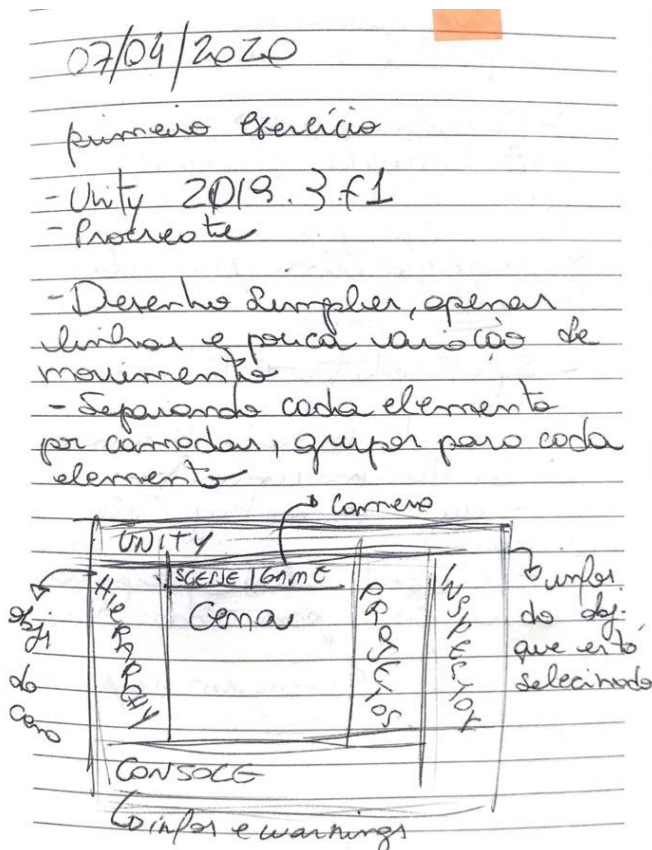 07/04/2020
primeiro exercício
- Unity 2019.3.f1
- Procreate
- Desenho simples, apenas
linhas e pouca variação de
movimento
- Separando cada elemento
por camadas, grupos para cada
elemento
Camera
UNITY
SCENE / GAME
Cena
HIERARCHY
INSPECTOR
CONSOLE
obj
do
cena
infos.
do obj.
que está
selecinado
infos e warnings